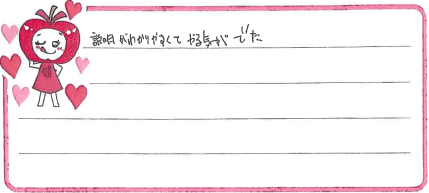 説明がわかりやすくて やる気がでた